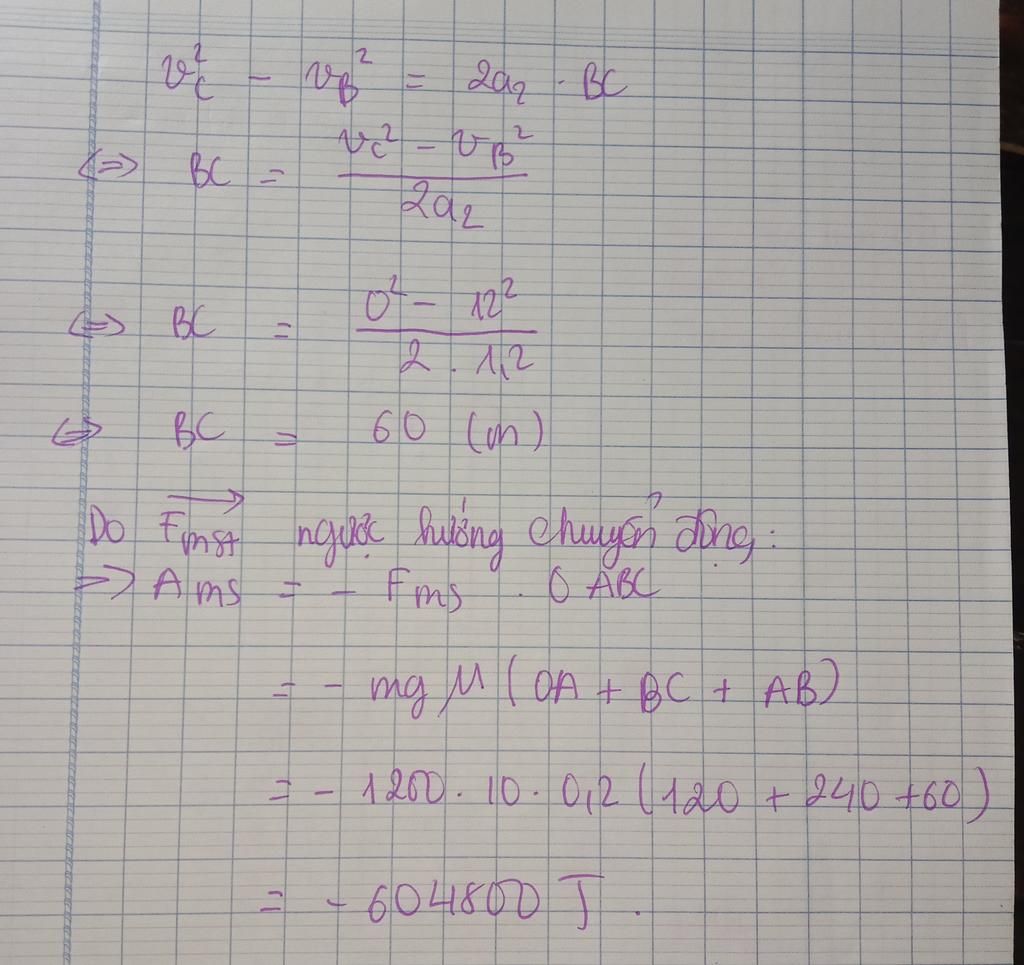 v_C² - v_B² = 2a₂ · BC
<=> BC = (v_C² - v_B²) / 2a₂
<=> BC = (0² - 12²) / (2 . 1,2)
<=> BC = 60 (m)
Do F⃗mst ngược hướng chuyển động:
=> Ams = - Fms . OABC
= - mg μ (OA + BC + AB)
= - 1200. 10. 0,2 (120 + 240 + 60)
= - 604800 J.